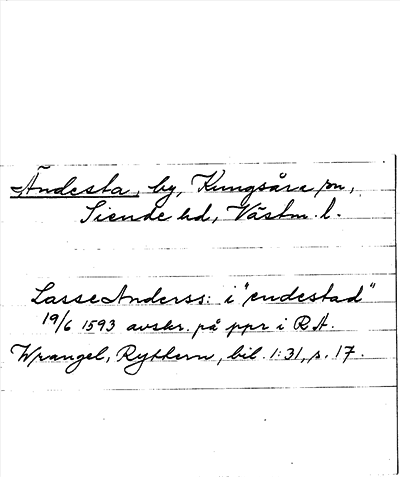 Ändesta, by, Kungsåra sn,
Siende hd, Västm. l.
Lasse Anderss: i "endestad"
19/6 1593 avskr. på ppr i RA.
Wrangel, Ryttern, bil. 1:31, s. 17.